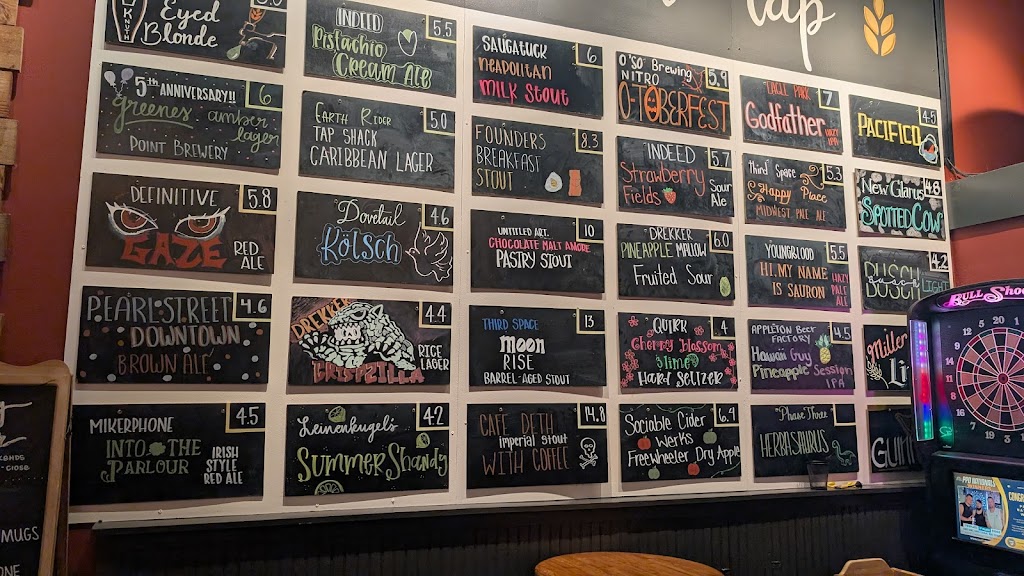 tap
Eyed
Blonde
5.5
INDEED
Pistachio
Cream Ale
6
SAUGATUCK
NEAPOLITAN
MILK STOUT
5.9
O'SO BREWING
NITRO
O-TOBERFEST
7
Godfather
4.5
PACIFICO
6
5th
ANNIVERSARY!!
greenes amber
lager
POINT BREWERY
5.0
EARTH RIDER
TAP SHACK
CARIBBEAN LAGER
8.3
FOUNDERS
BREAKFAST
STOUT
5.7
INDEED
Strawberry
Fields
Sour
Ale
5.3
Third Space
Happy Place
MIDWEST PALE ALE
4.8
New Glarus
SPOTTED COW
5.8
DEFINITIVE
GAZE
RED
ALE
4.6
Dovetail
KÖLSCH
10
UNTITLED ART.
CHOCOLATE MALT AMODE
PASTRY STOUT
6.0
DREKKER
PINEAPPLE MALLOW
Fruited Sour
5.5
YOUNGBLOOD
HI, MY NAME
IS SAURON
HAZY
PALE
ALE
4.2
BUSCH
LIGHT
4.6
PEARL STREET
DOWNTOWN
BROWN ALE
4.4
DREKKER
CRISPZILLA
RICE
LAGER
13
THIRD SPACE
moon
RISE
BARREL-AGED STOUT
4
QUIRK
Cherry Blossom
Lime
HARD SELTZER
4.5
APPLETON BEER
FACTORY
Hawaiian Guy
Pineapple Session
IPA
Miller
Li
4.5
MIKERPHONE
INTO THE
PARLOUR
IRISH
STYLE
RED ALE
4.2
Leinenkugel's
Summer Shandy
14.8
CAFE DETH
imperial stout
WITH COFFEE
6.4
Sociable Cider
Werks
Freewheeler Dry Apple
Phase Three
HERBASAURUS
GUIN
BULL SHOO
MUGS